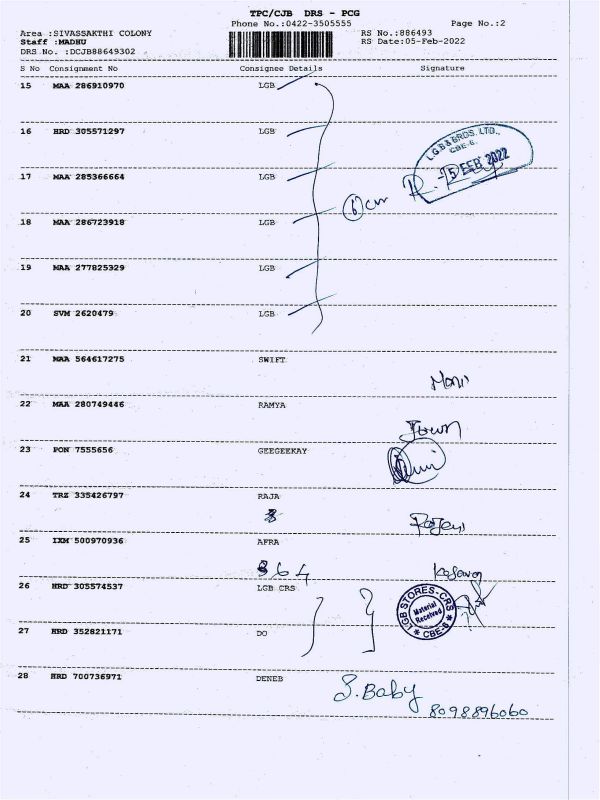 TPC/CJB DRS - PCG
Phone No.:0422-3505555 Page No.:2
Area :SIVASSAKTHI COLONY RS No.:886493
Staff :MADHU RS Date:05-Feb-2022
DRS No. :DCJB88649302
S No Consignment No Consignee Details Signature
15 MAA 286910970 LGB
16 HRD 305571297 LGB
L.G.B & BROS. LTD.,
CBE-6.
-5 FEB 2022
17 MAA 285366664 LGB
18 MAA 286723918 LGB
19 MAA 277825329 LGB
20 SVM 2620479 LGB
21 MAA 564617275 SWIFT
Moni
22 MAA 280749446 RAMYA
23 PON 7555656 GEEGEEKAY
24 TRZ 335426797 RAJA
25 IXM 500970936 AFRA
364
26 HRD 305574537 LGB CRS
LGB STORES-CRS
Material
Received
* CBE-6 *
27 HRD 352821171 DO
28 HRD 700736971 DENEB
S. Baby
8098896060